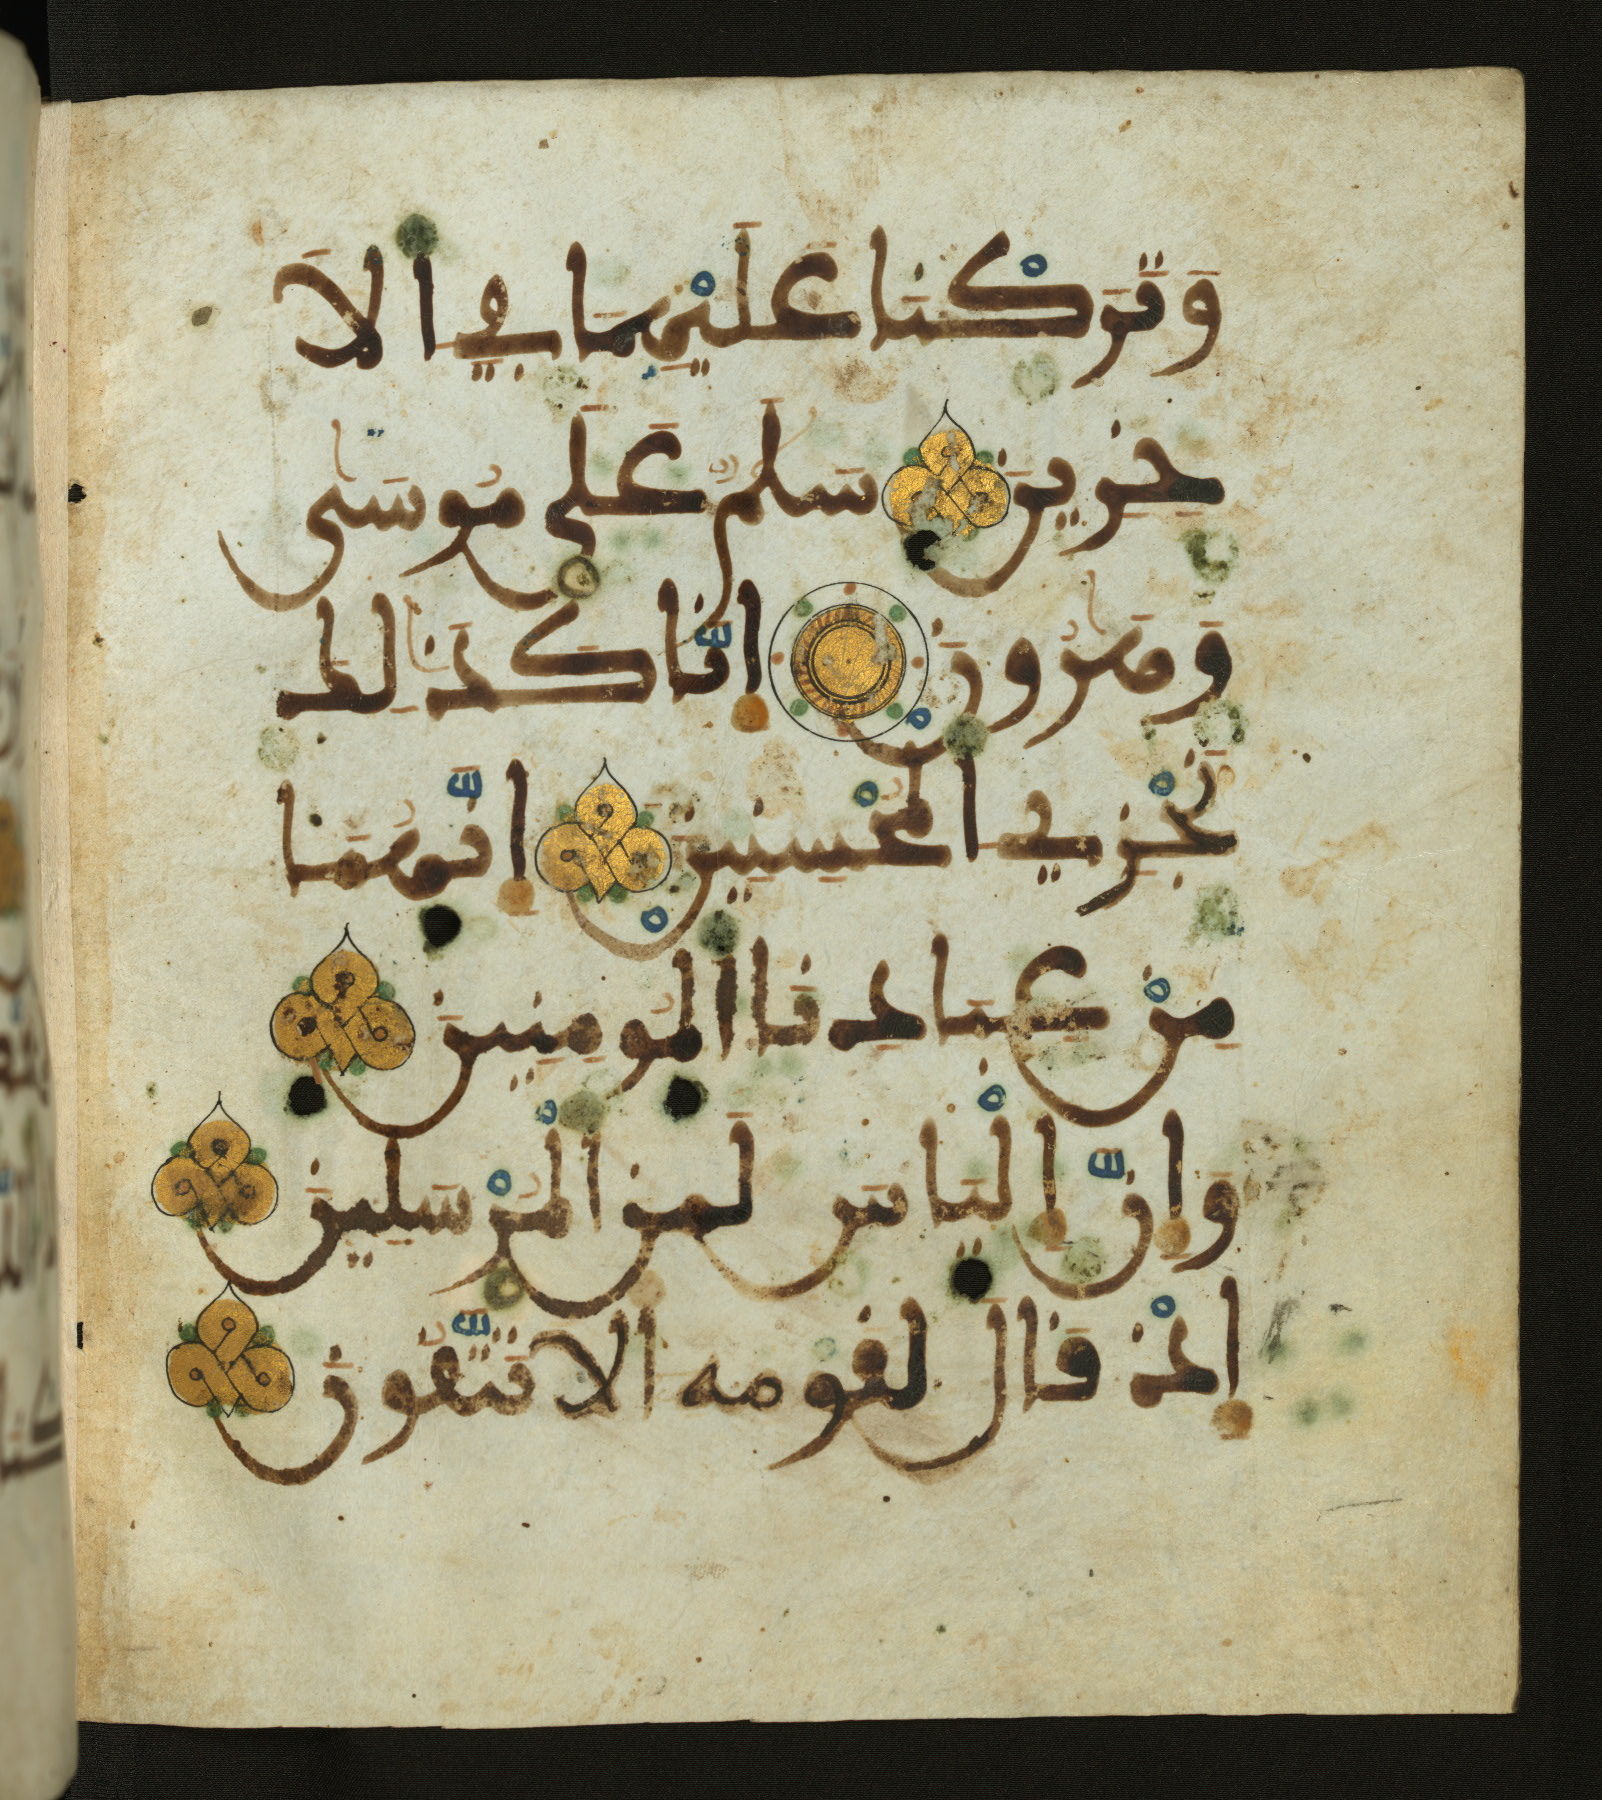 وَتَرَكْنَا عَلَيْهِمَا فِي الَا
خِرِينَ سَلَمٌ عَلَى مُوسَى
وَهَرُونَ إِنَّا كَذَلِكَ
نَجْزِي الْمُحْسِنِينَ إِنَّهُمَا
مِنْ عِبَادِنَا الْمُومِنِينَ
وَإِنَّ إِلْيَاسَ لَمِنَ الْمُرْسَلِينَ
إِذْ قَالَ لِقَوْمِهِ أَلَا تَتَّقُونَ